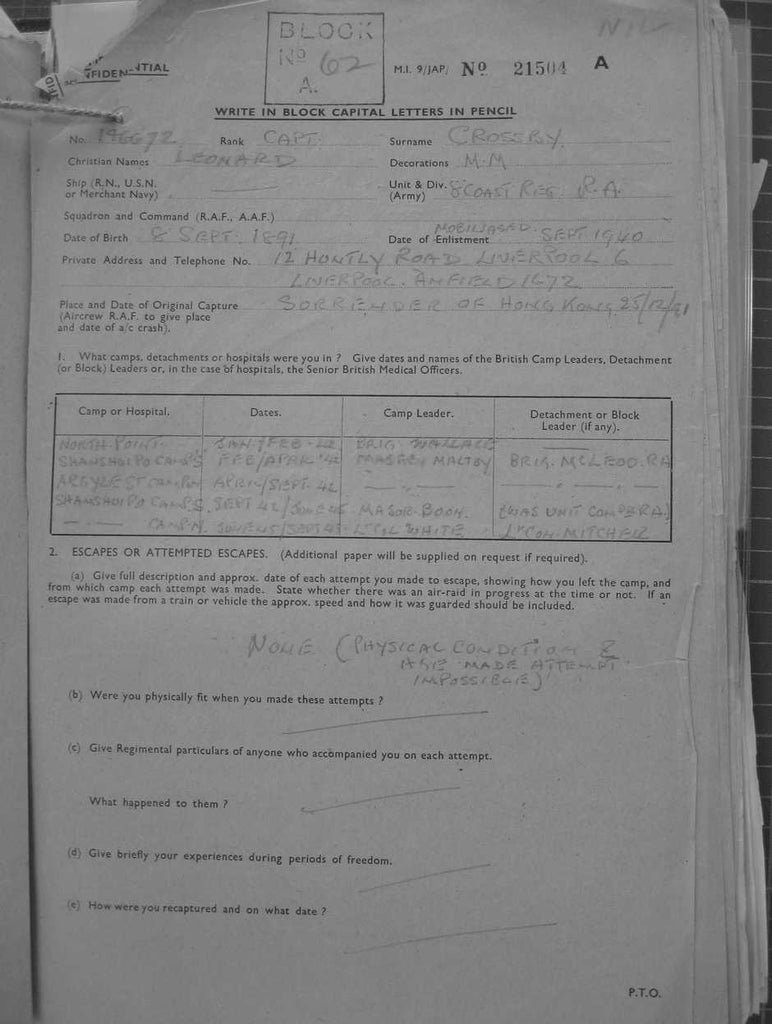 NIL
BLOCK
Nº 62
A.
FIDENTIAL
M.I. 9/JAP/ Nº 21504 A
WRITE IN BLOCK CAPITAL LETTERS IN PENCIL
No. Rank CAPT. Surname CROSSBY
Christian Names LEONARD Decorations M.M
Ship (R.N., U.S.N. or Merchant Navy)
Unit & Div. (Army) 8 COAST REG. R.A.
Squadron and Command (R.A.F., A.A.F.)
Date of Birth 8 SEPT. 1891 Date of Enlistment MOBILISED SEPT 1940
Private Address and Telephone No. 12 HUNTLY ROAD LIVERPOOL 6
LIVERPOOL. ANFIELD 1672
Place and Date of Original Capture SORRENDER OF HONG KONG 25/12/41
(Aircrew R.A.F. to give place
and date of a/c crash).
1. What camps, detachments or hospitals were you in ? Give dates and names of the British Camp Leaders, Detachment
(or Block) Leaders or, in the case of hospitals, the Senior British Medical Officers.
Camp or Hospital. Dates. Camp Leader. Detachment or Block Leader (if any).
NORTH POINT JAN/FEB - 42 BRIG. WALLACE
SHAMSHUI PO CAMP S FEB/APRIL '42 MALTBY BRIG. MCLEOD. RA
ARGYLE ST CAMP N APRIL/SEPT. 42 — " — — " —
SHAMSHUI PO CAMP. S. SEPT 42/JUNE 45 MAJOR BOON. (WAS UNIT COM RA)
— " — CAMP N. JUNE 45/SEPT 45 LT COL WHITE LT COL. MITCHELL
2. ESCAPES OR ATTEMPTED ESCAPES. (Additional paper will be supplied on request if required).
(a) Give full description and approx. date of each attempt you made to escape, showing how you left the camp, and
from which camp each attempt was made. State whether there was an air-raid in progress at the time or not. If an
escape was made from a train or vehicle the approx. speed and how it was guarded should be included.
NONE (PHYSICAL CONDITION &
AGE MADE ATTEMPT
IMPOSSIBLE)
(b) Were you physically fit when you made these attempts ?
(c) Give Regimental particulars of anyone who accompanied you on each attempt.
What happened to them ?
(d) Give briefly your experiences during periods of freedom.
(e) How were you recaptured and on what date ?
P.T.O.